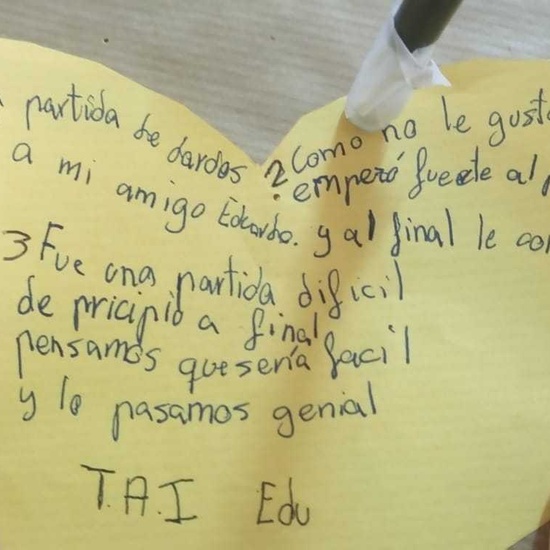 partida de dardos
a mi amigo Eduardo.
2 Como no le gust
empezó fuerte al
y al final le co
3 Fue una partida dificil
de pricipio a final
pensamos que sería facil
y lo pasamos genial
T.A.I Edu